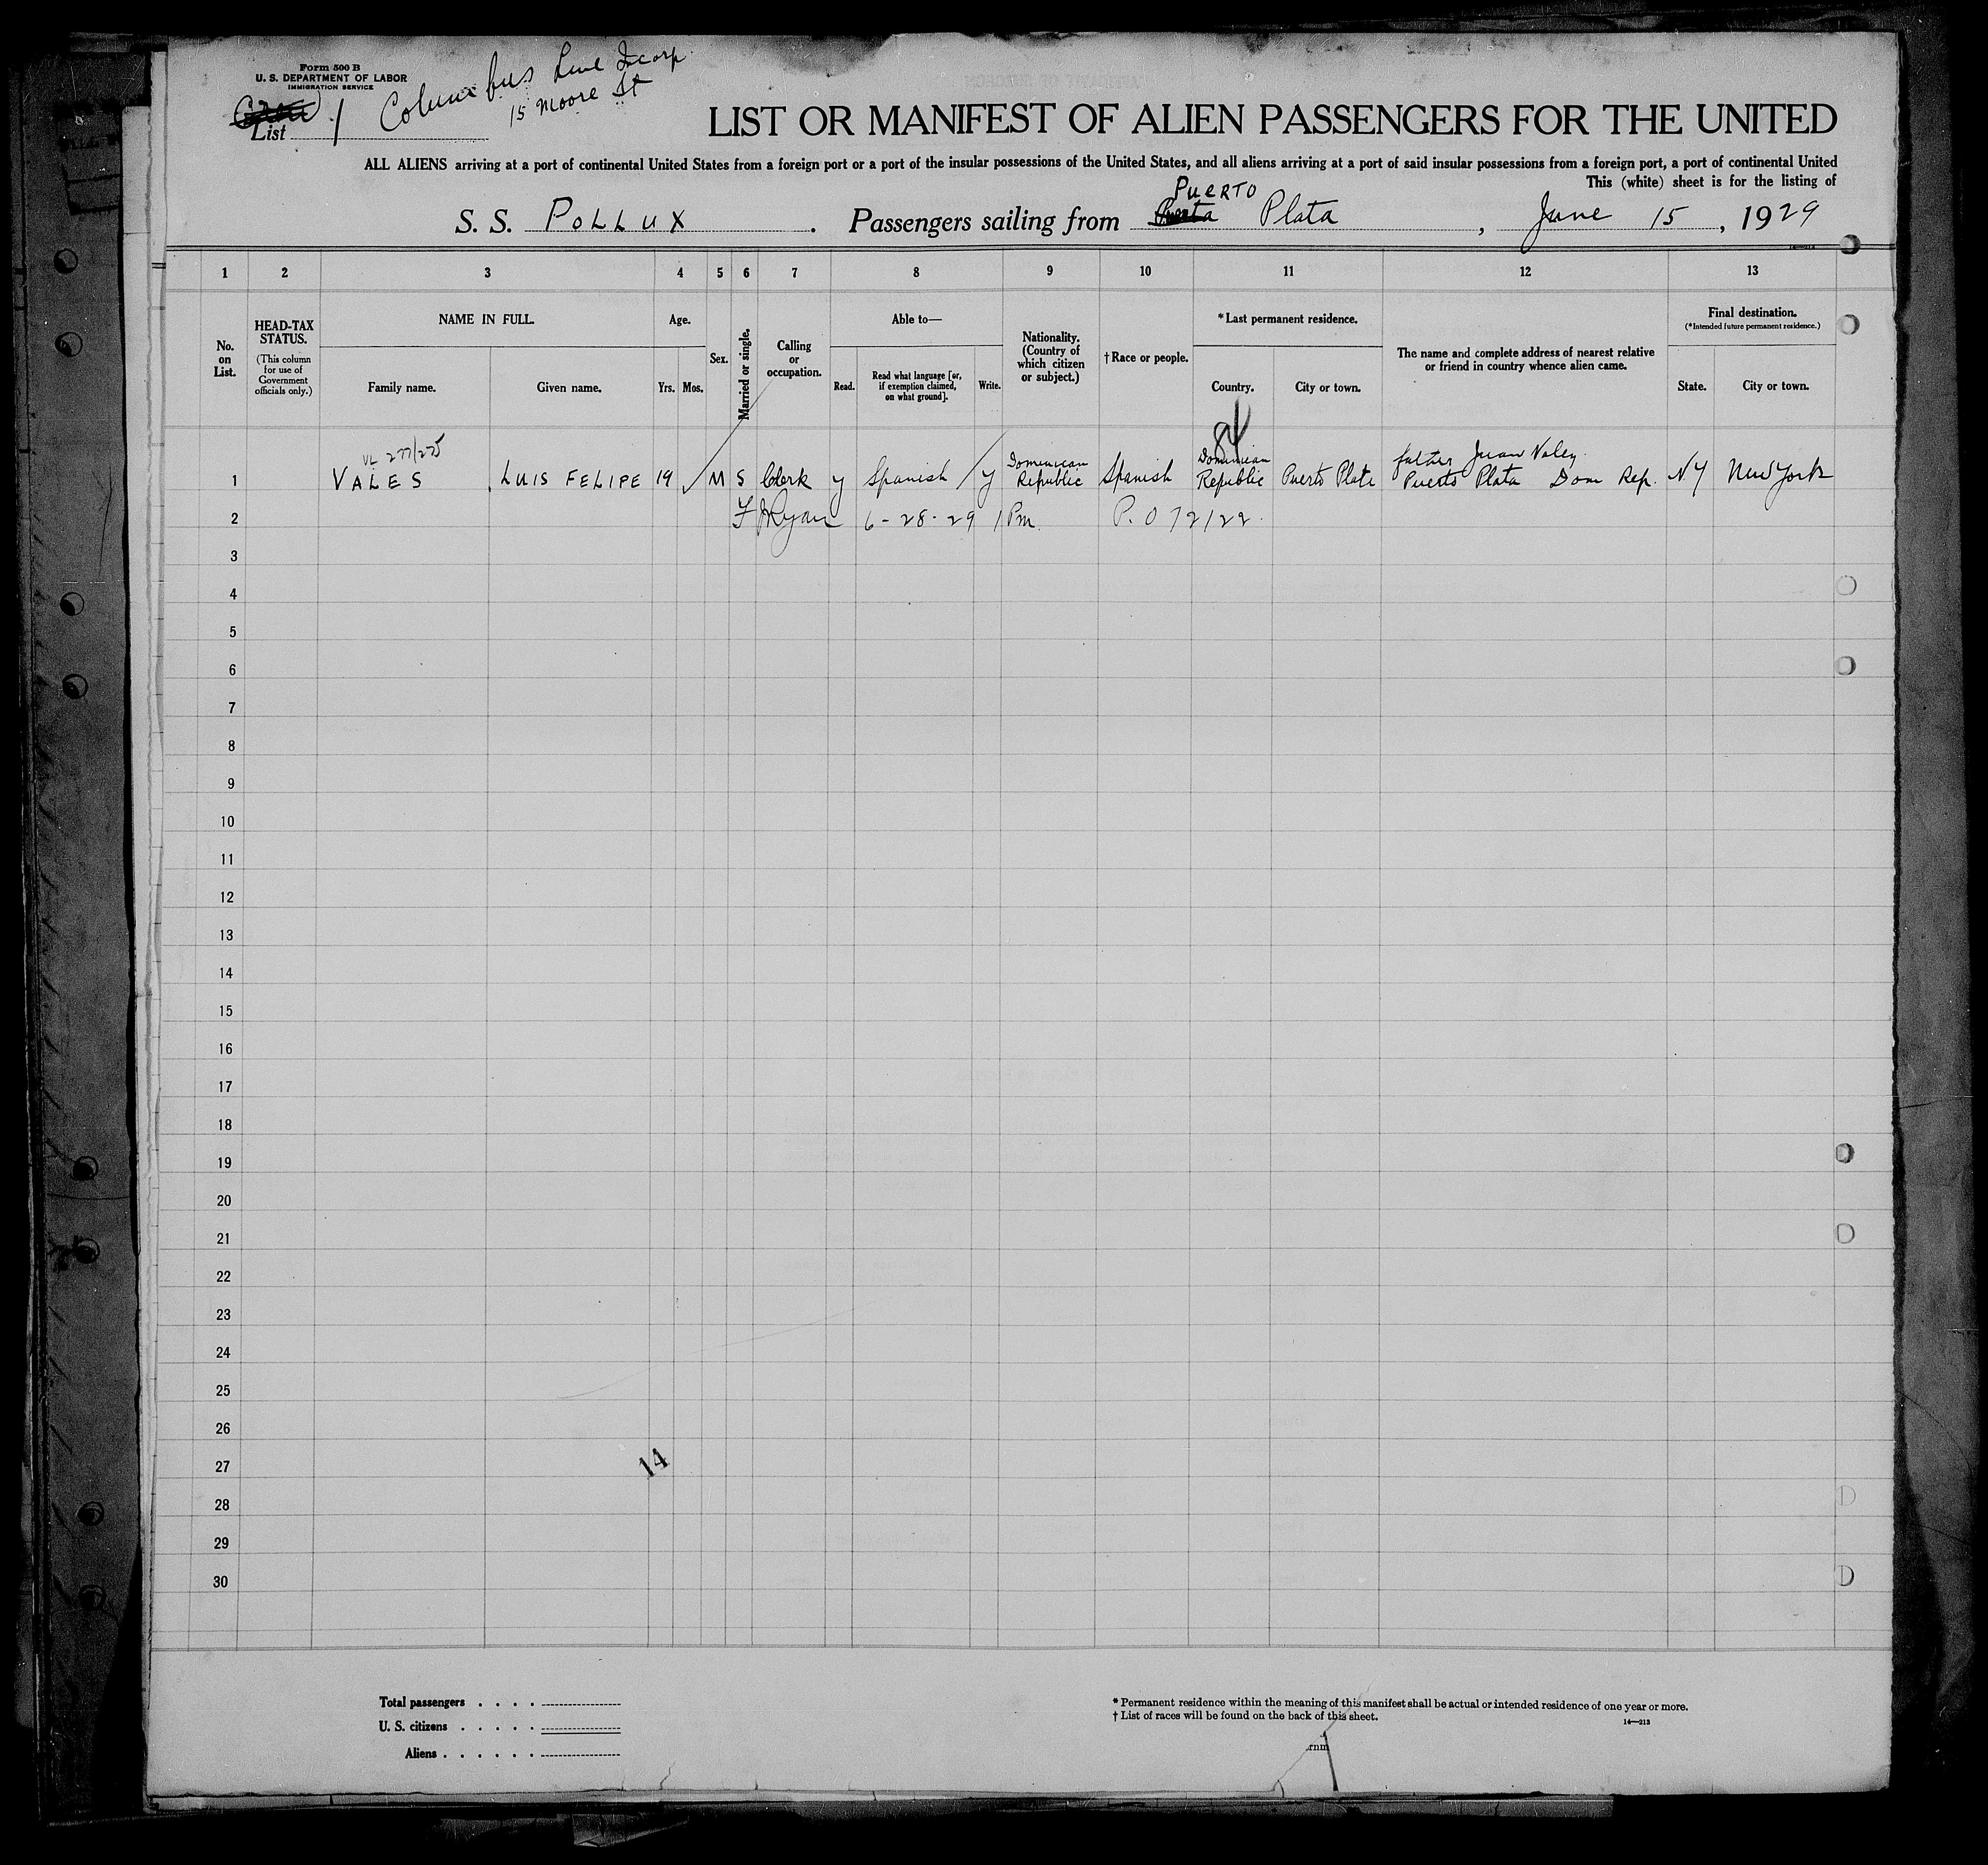 Form 500 B
U. S. DEPARTMENT OF LABOR
IMMIGRATION SERVICE
List 1
Columbus Line Incorp.
15 Moore St
LIST OR MANIFEST OF ALIEN PASSENGERS FOR THE UNITED
ALL ALIENS arriving at a port of continental United States from a foreign port or a port of the insular possessions of the United States, and all aliens arriving at a port of said insular possessions from a foreign port, a port of continental United
This (white) sheet is for the listing of
S. S. POLLUX. Passengers sailing from PUERTO Plata, June 15, 1929
1 2 3 4 5 6 7 8 9 10 11 12 13
No. on List.
HEAD-TAX STATUS.
(This column for use of Government officials only.)
NAME IN FULL.
Family name.
Given name.
Age.
Yrs. Mos.
Sex.
Married or single.
Calling or occupation.
Able to—
Read.
Read what language [or, if exemption claimed, on what ground].
Write.
Nationality. (Country of which citizen or subject.)
†Race or people.
*Last permanent residence.
Country.
City or town.
The name and complete address of nearest relative or friend in country whence alien came.
Final destination.
(*Intended future permanent residence.)
State.
City or town.
84
VL 277/275
1 VALES LUIS FELIPE 19 M S Clerk y Spanish y Dominican Republic Spanish Dominican Republic Puerto Plate father Juan Vales. Puerto Plata Dom Rep. NY New York
2 F J Ryan 6-28-29 1 Pm. P.O 72122.
3
4
5
6
7
8
9
10
11
12
13
14
15
16
17
18
19
20
21
22
23
24
25
26
27
28
29
30
14
Total passengers . . . .
U. S. citizens . . . . .
Aliens . . . . . .
* Permanent residence within the meaning of this manifest shall be actual or intended residence of one year or more.
† List of races will be found on the back of this sheet.
14—213
rnm